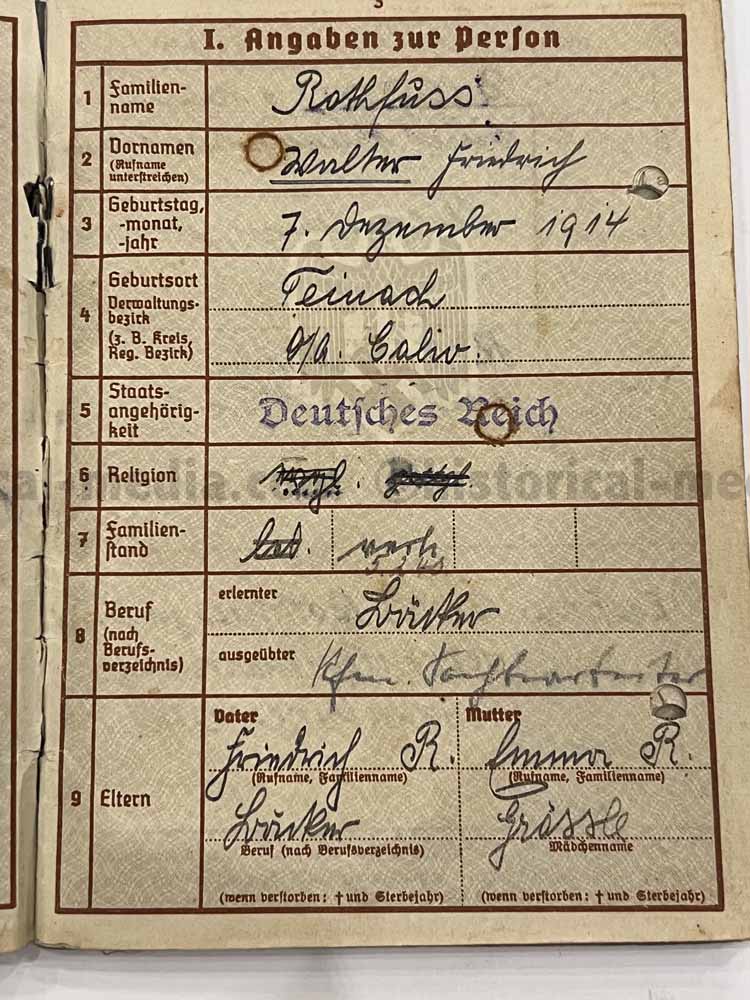 3
I. Angaben zur Person
1 Familien-
name
Rothfuss
2 Vornamen
(Rufname
unterstreichen)
Walter Friedrich
3 Geburtstag,
-monat,
-jahr
7. Dezember 1914
4 Geburtsort
Verwaltungs-
bezirk
(z. B. Kreis,
Reg. Bezirk)
Teinach
O/A. Calw.
5 Staats-
angehörig-
keit
Deutsches Reich
6 Religion
7 Familien-
stand
led. verh.
8 Beruf
(nach
Berufs-
verzeichnis)
erlernter
Bäcker
ausgeübter
Kfm. Sachbearbeiter
9 Eltern
Vater
Friedrich R.
(Rufname, Familienname)
Bäcker
Beruf (nach Berufsverzeichnis)
(wenn verstorben: † und Sterbejahr)
Mutter
Emma R.
(Rufname, Familienname)
Grässle
Mädchenname
(wenn verstorben: † und Sterbejahr)